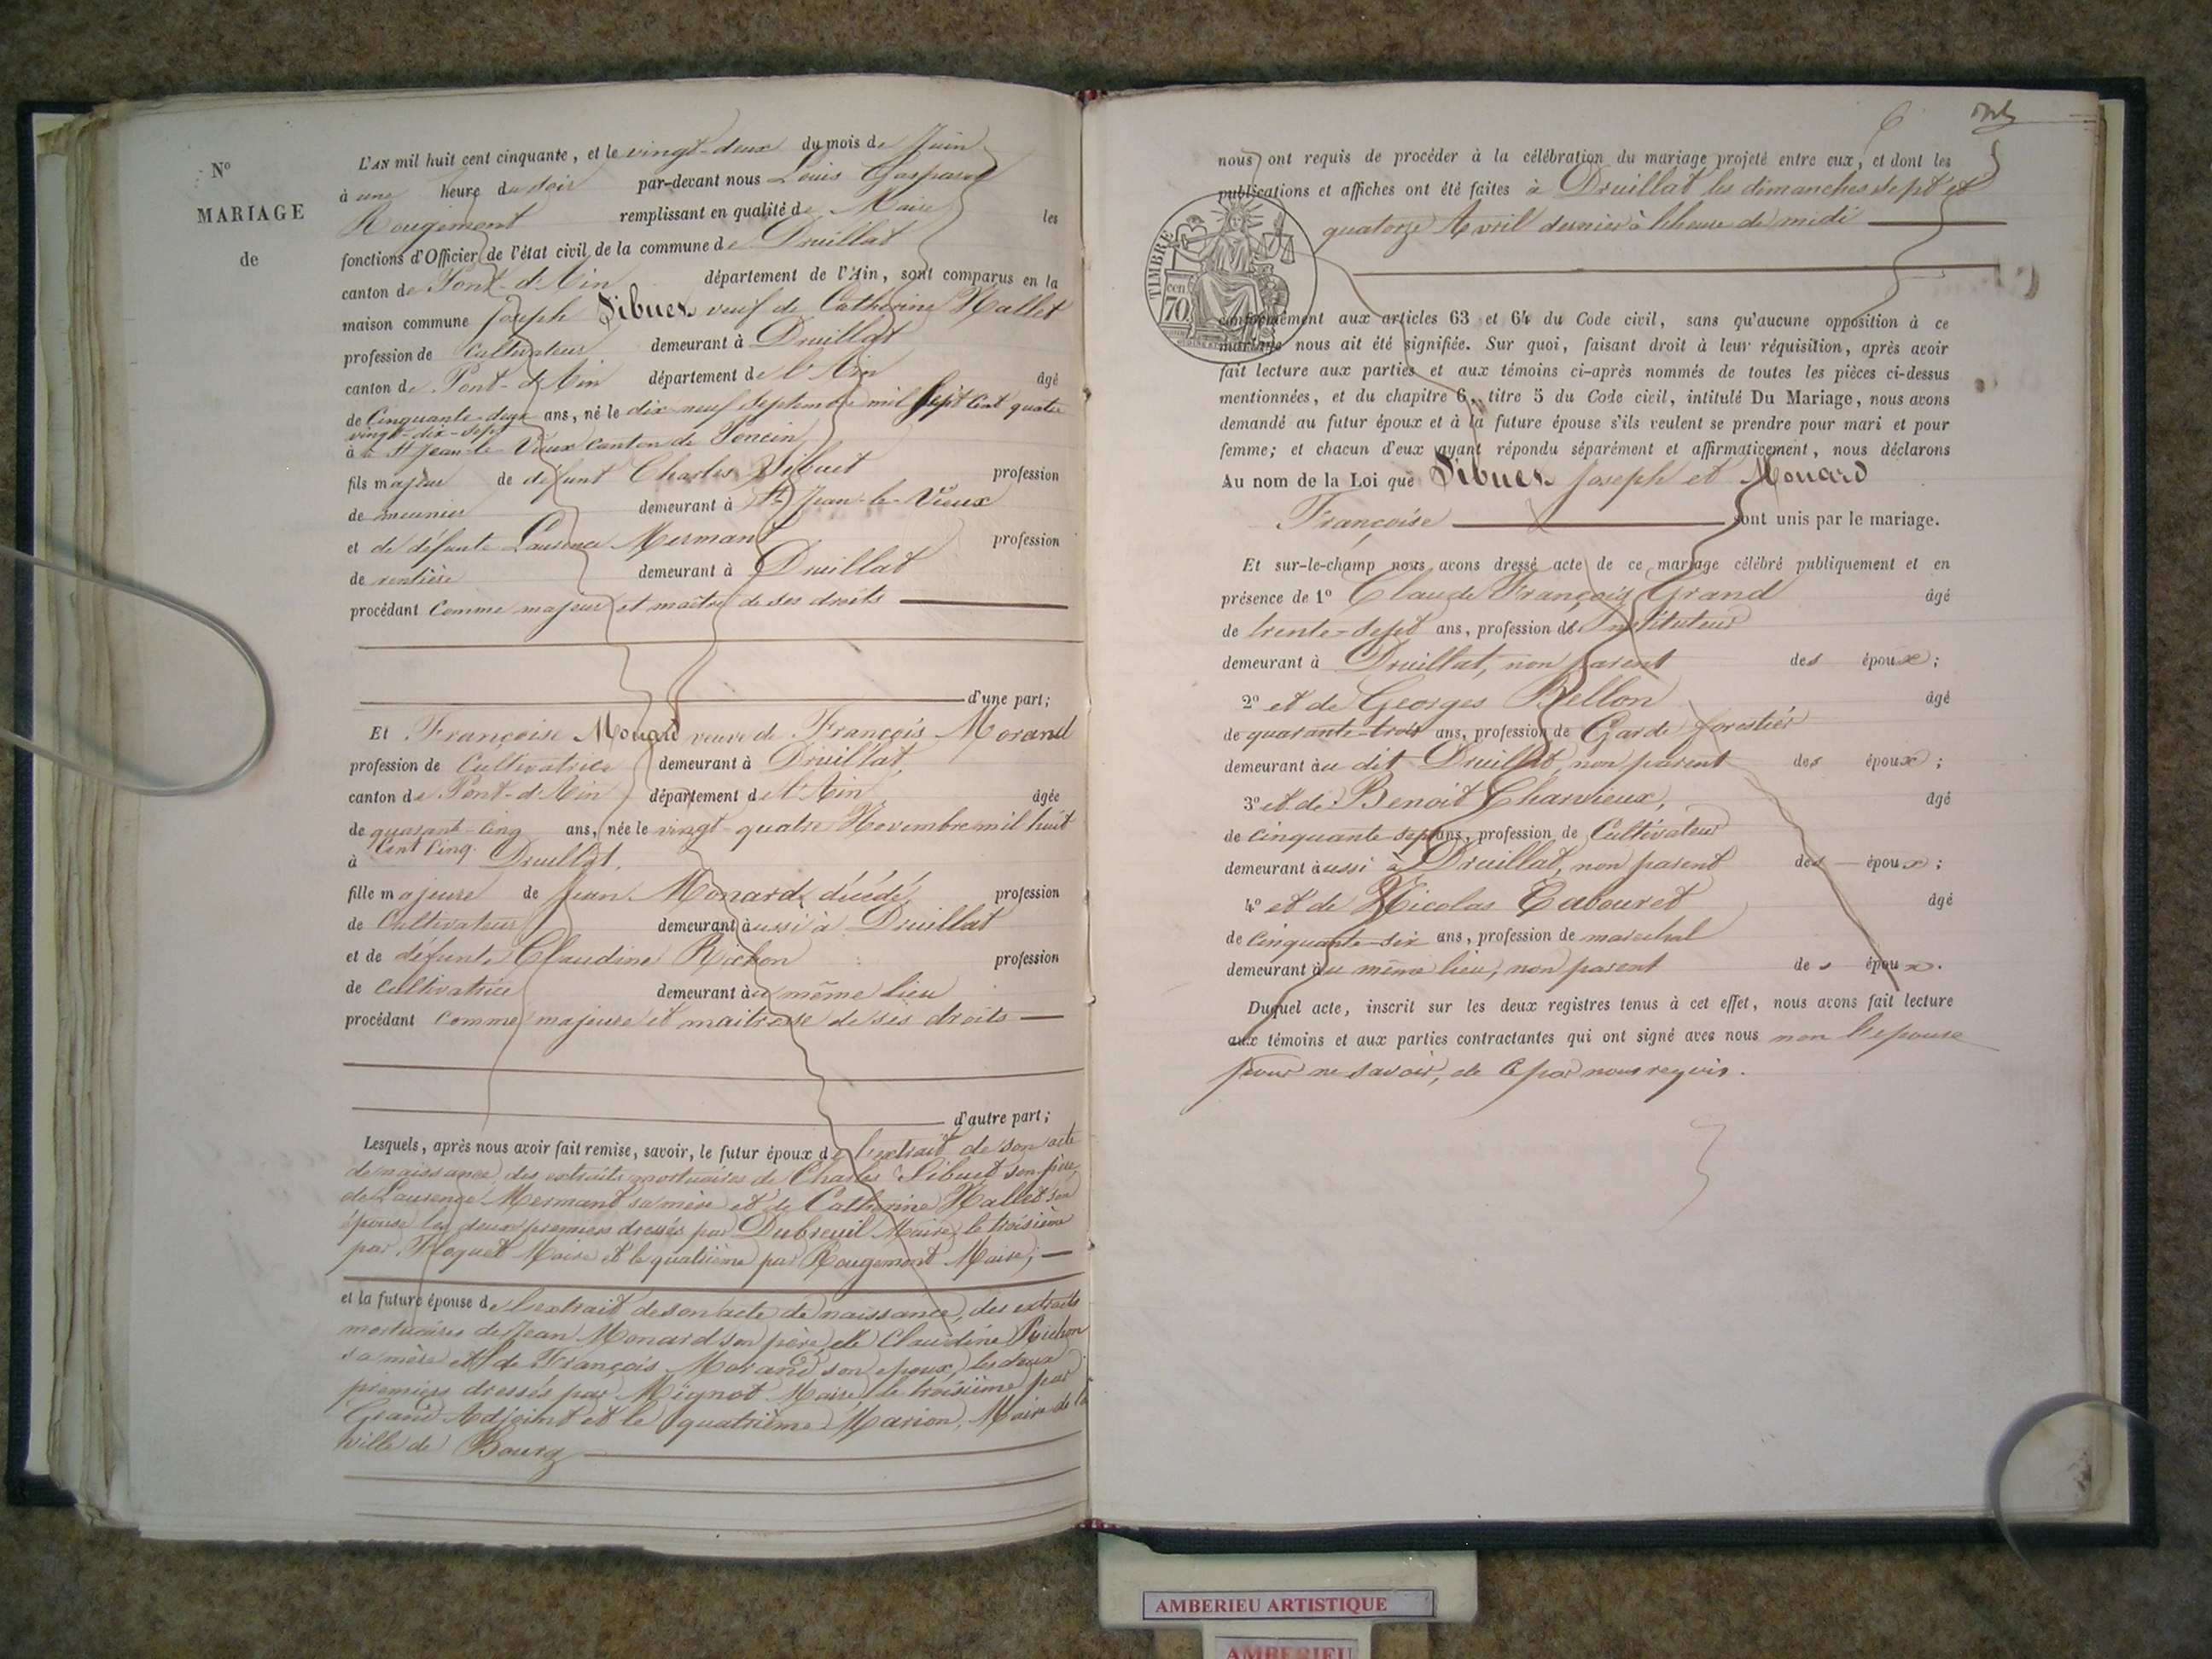 N°
MARIAGE
de
L'AN mil huit cent cinquante, et le vingt-deux du mois de Juin
à une heure du soir par-devant nous Louis Gaspard
Rougemont remplissant en qualité de Maire les
fonctions d'Officier de l'état civil de la commune de Druillat
canton de Pont-d'Ain département de l'Ain, sont comparus en la
maison commune Joseph Sibuet veuf de Catherine Hallet
profession de Cultivateur demeurant à Druillat
canton de Pont-d'Ain département de l'Ain âgé
de Cinquante-deux ans, né le dix neuf Septembre mil Sept Cent quatre
vingt-dix-sept
à St Jean-le-Vieux canton de Poncin
fils majeur de défunt Charles Sibuet profession
de meunier demeurant à St Jean-le-Vieux
et de défunte Laurence Mermant profession
de rentière demeurant à Druillat
procédant Comme majeur et maître de ses droits
d'une part;
Et Françoise Monard veuve de François Morand
profession de Cultivatrice demeurant à Druillat,
canton de Pont-d'Ain département de l'Ain âgée
de quarante-cinq ans, née le vingt-quatre Novembre mil huit
Cent Cinq
à Druillat.
fille majeure de Jean Monard, décédé, profession
de Cultivateur demeurant aussi à Druillat
et de défunte Claudine Richon profession
de Cultivatrice demeurant au même lieu
procédant Comme majeure et maitresse de ses droits
d'autre part;
Lesquels, après nous avoir fait remise, savoir, le futur époux de l'extrait de son acte
de naissance, des extraits mortuaires de Charles Sibuet son père,
de Laurence Mermant sa mère et de Catherine Hallet son
épouse les deux premiers dressés par Dubreuil Maire, le troisième
par Floquet Maire et le quatrième par Rougemont Maire;
et la future épouse de l'extrait de son acte de naissance, des extraits
mortuaires de Jean Monard son père, de Claudine Richon
sa mère et de François Morand son epoux, les deux
premiers dressés par Mignot Maire, le troisième par
Grand Adjoint et le quatrième Marion, Maire de la
Ville de Bourg
6
nous ont requis de procéder à la célébration du mariage projeté entre eux, et dont les
publications et affiches ont été faites à Druillat les dimanches sept et
quatorze Avril dernier à l'heure de midi
TIMBRE
cen
70
conformément aux articles 63 et 64 du Code civil, sans qu'aucune opposition à ce
mariage nous ait été signifiée. Sur quoi, faisant droit à leur réquisition, après avoir
fait lecture aux parties et aux témoins ci-après nommés de toutes les pièces ci-dessus
mentionnées, et du chapitre 6, titre 5 du Code civil, intitulé Du Mariage, nous avons
demandé au futur époux et à la future épouse s'ils veulent se prendre pour mari et pour
femme; et chacun d'eux ayant répondu séparément et affirmativement, nous déclarons
Au nom de la Loi que Sibuet Joseph et Monard
Françoise sont unis par le mariage.
Et sur-le-champ nous avons dressé acte de ce mariage célébré publiquement et en
présence de 1° Claude François Grand âgé
de trente-sept ans, profession de Instituteur
demeurant à Druillat, non parent des époux;
2° et de Georges Bellon âgé
de quarante-trois ans, profession de Garde forestier
demeurant au dit Druillat, non parent des époux;
3° et de Benoit Charvieux, âgé
de cinquante-sept ans, profession de Cultivateur
demeurant aussi à Druillat, non parent des époux;
4° et de Nicolas Tabouret âgé
de Cinquante-six ans, profession de marechal
demeurant au même lieu, non parent des époux.
Duquel acte, inscrit sur les deux registres tenus à cet effet, nous avons fait lecture
aux témoins et aux parties contractantes qui ont signé avec nous non l'epouse
pour ne savoir, de ce par nous requis.
AMBERIEU ARTISTIQUE
AMBERIEU